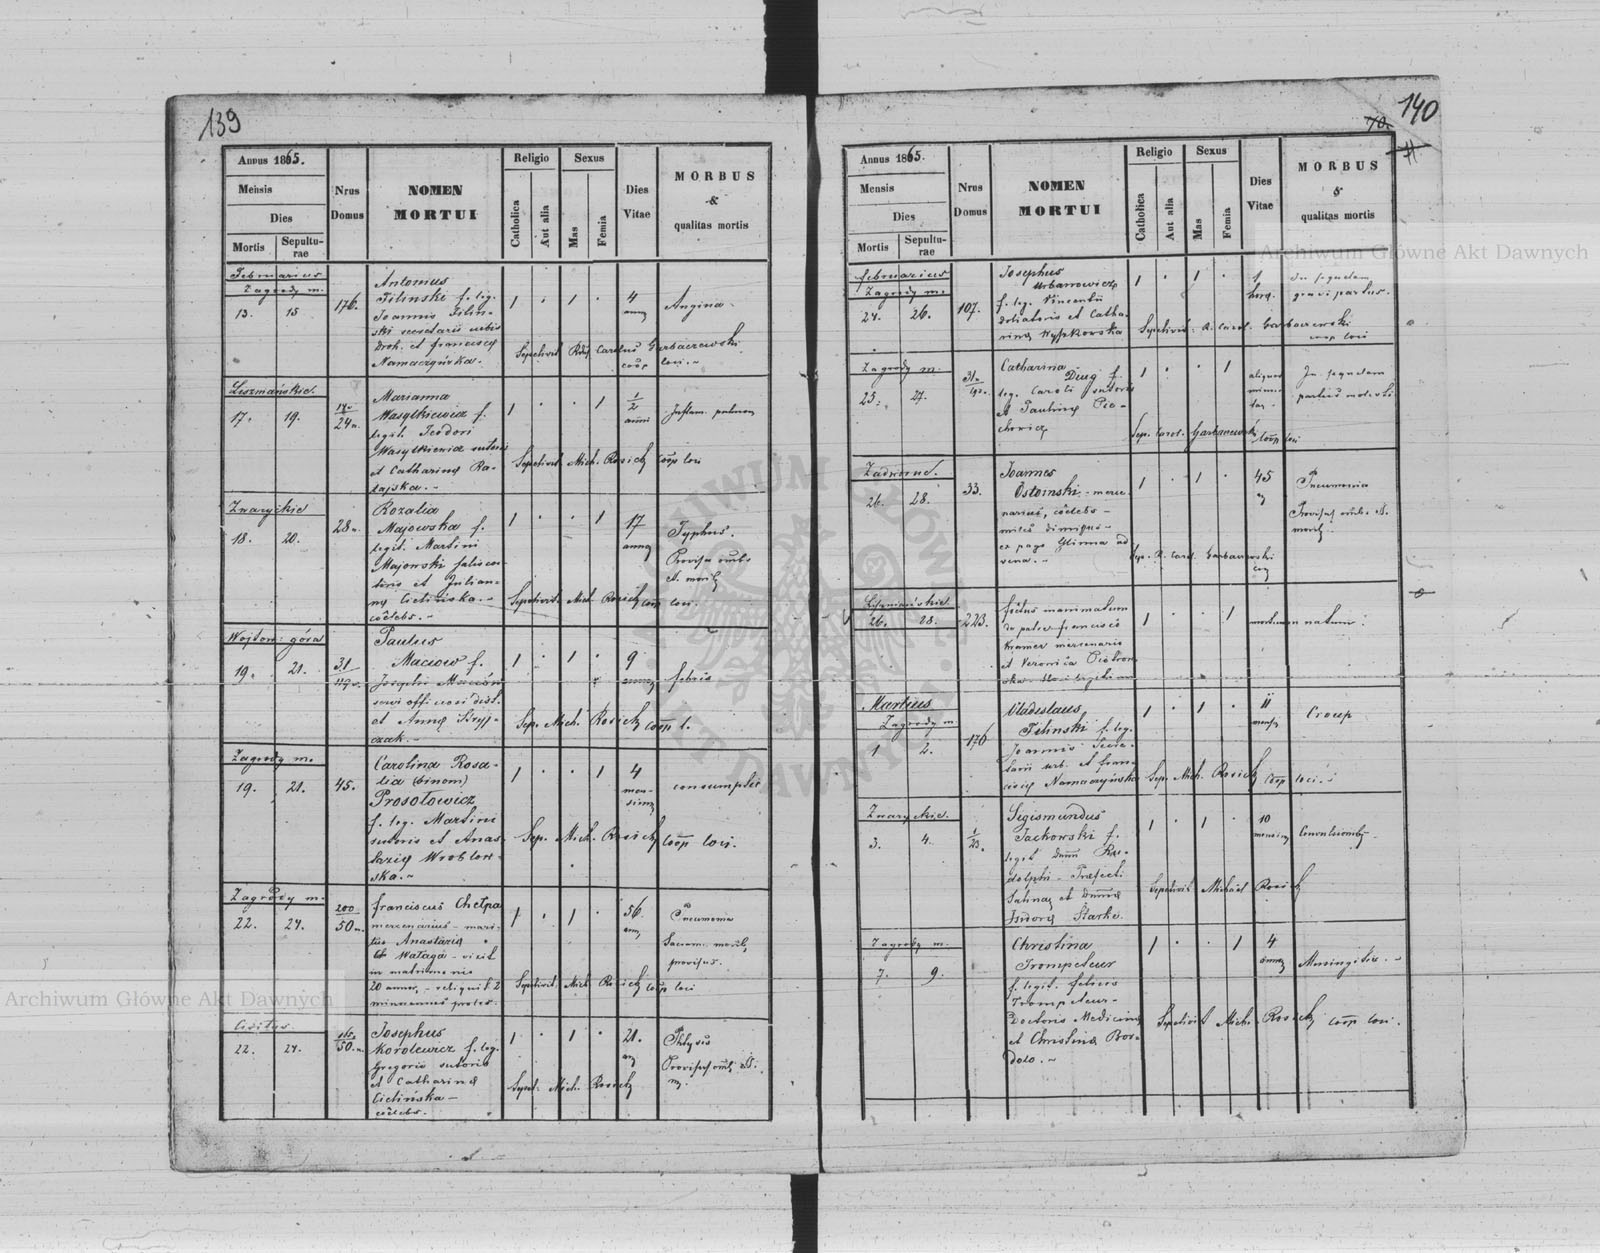 139
Annus 1865.
Mensis
Dies
Mortis
Sepulturae
Nrus Domus
NOMEN MORTUI
Religio
Catholica
Aut alia
Sexus
Mas
Femia
Dies Vitae
MORBUS
&
qualitas mortis
Februarius
Zagrody m.
13. 15
176.
Antonius
Tilinski f. leg.
Joannis Tiliń-
ski secretarii urbis
Droh. et Francisca
1 . 1 .
4
Angina
Sepelivit Rdus Carolus Garbaczewski
coop loci.
Liszniańskie.
17. 19.
24
Marianna
Wasylkiewicz f.
legit. Teodori
Wasylkiewicz sutoris
et Catharina Ra-
tajska.
1 . . 1
1/2
anni
Inflam. pulmon
Sepelivit Mich. Rosick coop loci
Zwaryckie
18. 20.
28
Rozalia
Majowska f.
legit. Martini
Majowski
et Julian-
na Cielińska.
coelebs.
1 . . 1
17
Typhus.
Provisa omb.
st. morib
Sepelivit. Mich. Rosick coop loci.
Wojtow: góra
19. 21.
31
Paulus
Maciow f.
Josephi
et Anna
1 . 1 .
9
febris
Sep. Mich. Rosick coop l.
Zagrody m.
19. 21.
45.
Carolina Rosa-
lia (binom)
Prosołowicz
f. leg. Martini
sutoris et Anas-
tazia Wroblew-
ska.
1 . . 1
4
men-
sium
consumptio
Sep. Mich. Rosick coop loci.
Zagrody m.
22. 24.
200
50
Franciscus Chełpa
mercenarius - mari-
tus Anastazia
Wataga - vixit
in matrimonio
20 annos, - reliquit 2
minorennes proles.
1 . 1 .
56.
Pneumonia
Sacram. morib,
provisus.
Sepelivit. Mich Rosick coop loci
Civitas
22. 24.
50
Josephus
Korolewicz f. leg.
Gregorii sutoris
et Catharina
Cielińska -
coelebs.
1 . 1 .
21.
Phtysis
Provisus omb. st.
m.
Sepel. Mich. Rosick
140
70.
Annus 1865.
Mensis
Dies
Mortis
Sepulturae
Nrus Domus
NOMEN MORTUI
Religio
Catholica
Aut alia
Sexus
Mas
Femia
Dies Vitae
MORBUS
&
qualitas mortis
Februarius
Zagrody m.
24. 26.
107.
Josephus
Urbanowicz
f. leg. Vincentii
doliatoris et Catha-
rina Wyszkowska
1 . 1 .
1
hora.
In sequelam
gravi partus.
Sepelivit: R. Carol. Garbaczewski
coop loci
Zagrody m.
25. 27.
Catharina
Dług f.
leg. Caroli sutoris
et Paulina Pie-
chowicz
1 . . 1
aliquot
minu-
tas
In sequelam
partus molesti
Sep. Carol. Garbaczewski coop loci
Zadworne.
26. 28.
33.
Joannes
Ostomski - merce-
narius, coelebs -
miles dimissus -
ex pago Glinna ad
vena.
1 . 1 .
45
Pneumonia
Provisus omb. st.
morib
Sep. R. Carol. Garbaczewski
Liszniańskie
26. 28.
223.
foetus inanimatum
de patre Francisco
Kramer mercenario
et Veronica Piotrow-
ska.
1 . . 1
mortuum natum.
Martius
Zagrody m.
1 2.
176
Vladislaus
Tilinski f. leg.
Joannis Secre-
tarii urb. et Fran-
cisca Namaczyńska
1 . 1 .
11
mens
Croup
Sep. Mich. Rosick coop loci.
Zwaryckie.
3. 4.
1
23.
Sigismundus
Jackowski f.
legit. Ru-
dolphi - Praefecti
Salinae et
Isidora Starke.
1 . 1 .
10
mensium
Convulsiones
Sepelivit Michael Rosick
Zagrody m.
7. 9.
Christina
Trompeteur
f. legit. Felicis
Trompeteur -
Doctoris Medicina
et Christina Bor-
dolo.
1 . . 1
4
annos
Meningitis.
Sepelivit Mich. Rosick coop loci.
Archiwum Główne Akt Dawnych
Archiwum Główne Akt Dawnych
ARCHIWUM GŁÓWNE AKT DAWNYCH